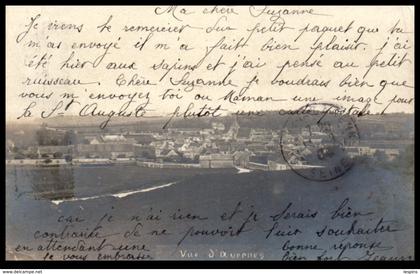 Ma chère Suzanne
Je viens te remercier du petit paquet que tu
m'as envoyé il m'a fait bien plaisir. j'ai
été hier aux sapins et j'ai pensé au petit
ruisseau. Chère Suzanne je voudrais bien que
vous m'envoyez toi ou Maman une image pour
la St Auguste plutôt une carte postale
SEINE
car je n'ai rien et je serais bien
contrariée de ne pouvoir lui souhaiter
en attendant une bonne réponse
je vous embrasse bien fort Jeanne
Vue d'